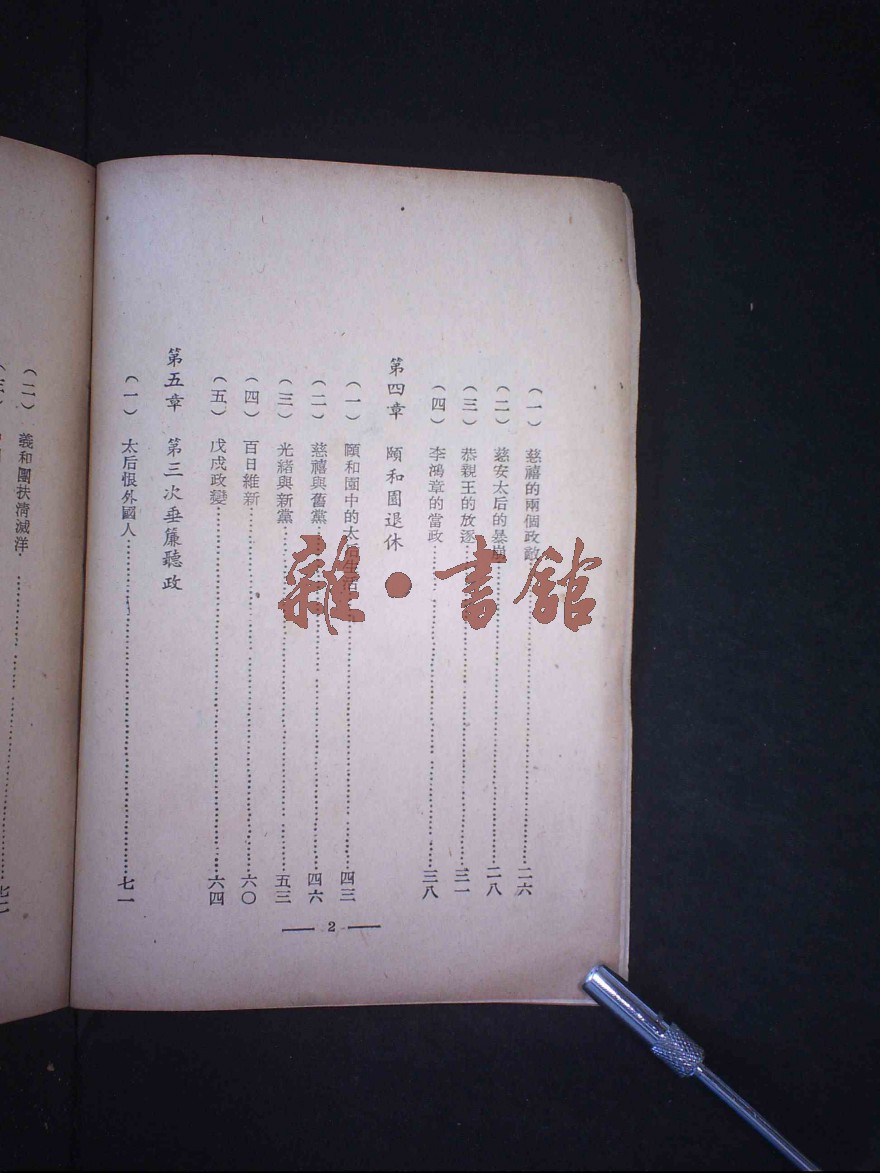 （一）　慈禧的兩個政敵……二六
（二）　慈安太后的暴崩……二八
（三）　恭親王的放逐……三一
（四）　李鴻章的當政……三八
第四章　頤和園退休
（一）　頤和園中的太后生活……四三
（二）　慈禧與舊黨……四六
（三）　光緒與新黨……五三
（四）　百日維新……六〇
（五）　戊戌政變……六四
第五章　第三次垂簾聽政
（一）　太后恨外國人……七一
（二）　義和團扶清滅洋……七二
2
雜·書館